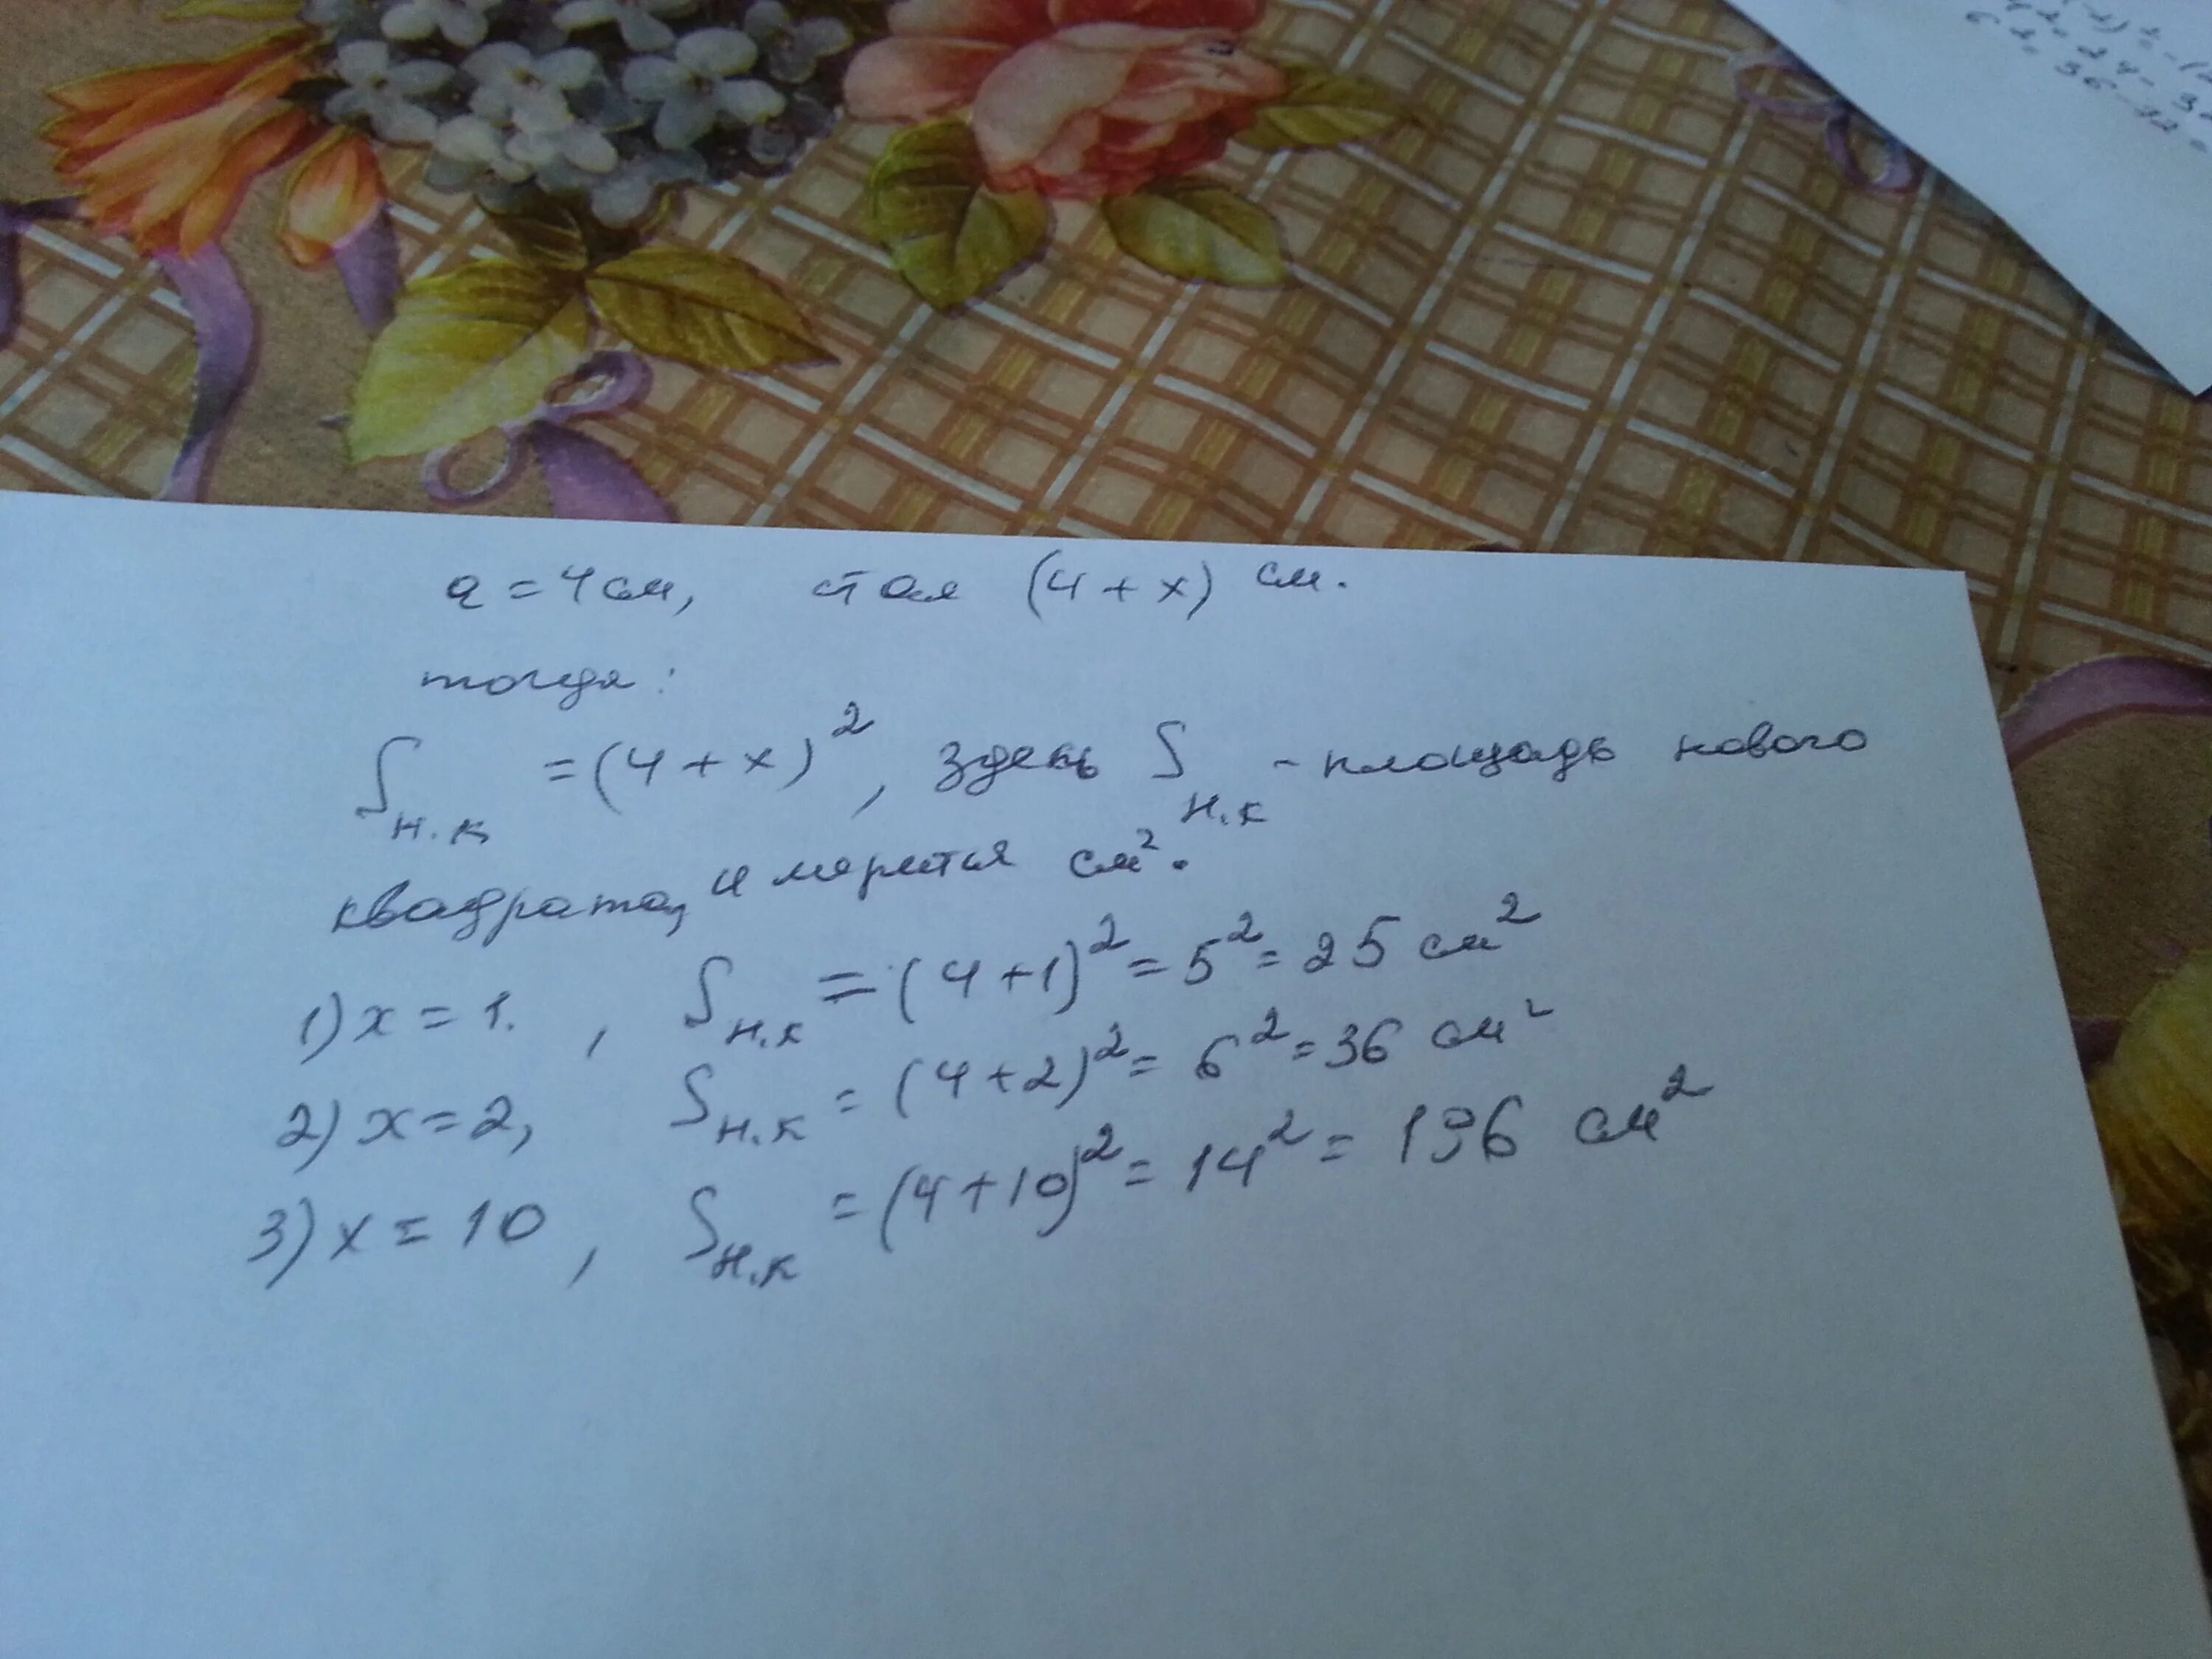 a = 4 см, стал (4 + x) см.
тогда:
S н.к = (4 + x)², здесь S н.к - площадь нового
квадрата, и мерится см².
1) x = 1. , S н.к = (4 + 1)² = 5² = 25 см²
2) x = 2, S н.к = (4 + 2)² = 6² = 36 см²
3) x = 10 , S н.к = (4 + 10)² = 14² = 196 см²